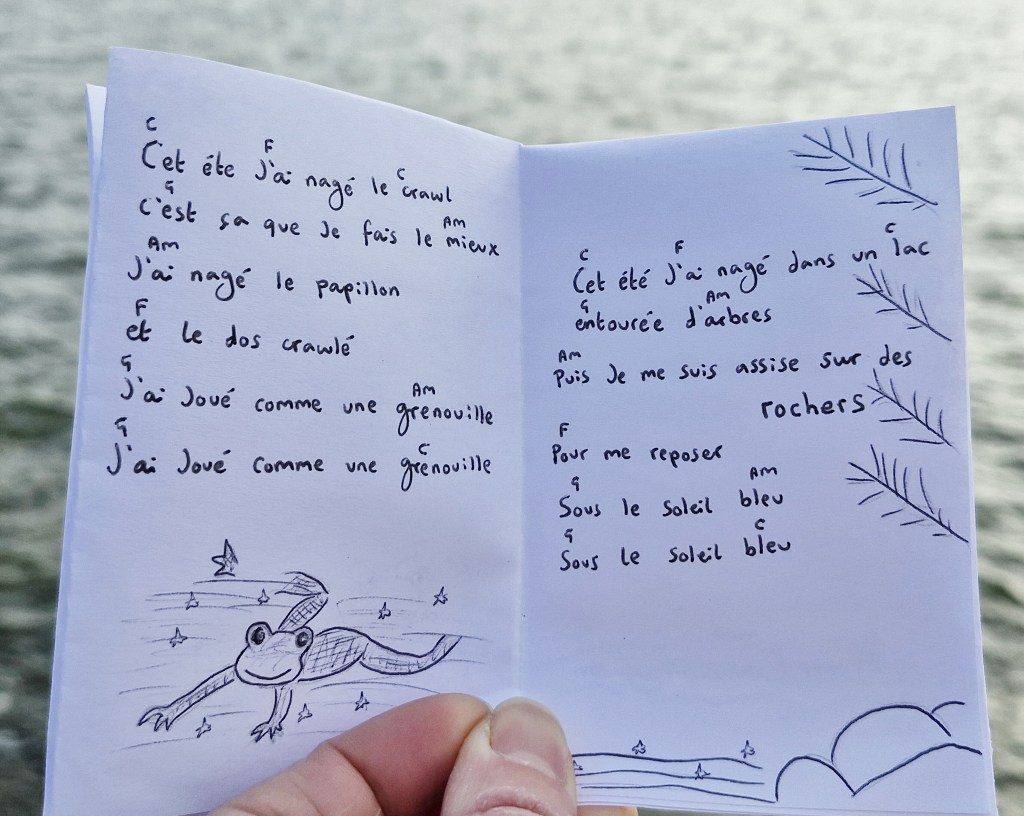 C F C
Cet éte J'ai nagé le crawl
G Am
c'est ça que Je fais le mieux
Am
J'ai nagé le papillon
F
et le dos crawlé
G Am
J'ai Joué comme une grenouille
G C
J'ai Joué comme une grenouille
C F C
Cet été J'ai nagé dans un lac
G Am
entourée d'arbres
Am
Puis Je me suis assise sur des
rochers
F
Pour me reposer
G Am
Sous le soleil bleu
G C
Sous le soleil bleu